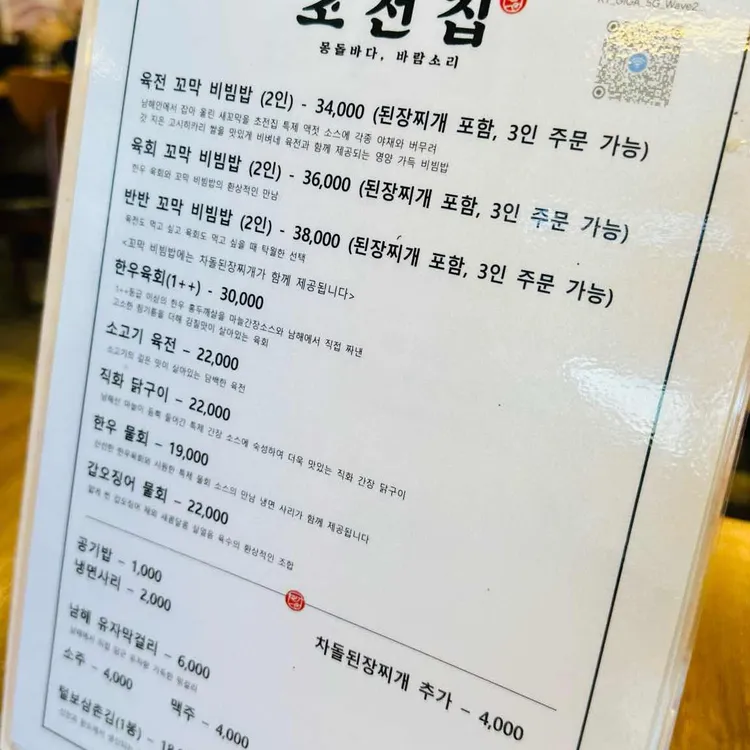 초전집
KT_GIGA_5G_Wave2
몽돌바다, 바람소리
육전 꼬막 비빔밥 (2인) - 34,000 (된장찌개 포함, 3인 주문 가능)
남해안에서 잡아 올린 새꼬막을 초전집 특제 액젓 소스에 각종 야채와 버무려
갓 지은 고시히카리 쌀을 맛있게 비벼네 육전과 함께 제공되는 영양 가득 비빔밥
육회 꼬막 비빔밥 (2인) - 36,000 (된장찌개 포함, 3인 주문 가능)
한우 육회와 꼬막 비빔밥의 환상적인 만남
반반 꼬막 비빔밥 (2인) - 38,000 (된장찌개 포함, 3인 주문 가능)
육전도 먹고 싶고 육회도 먹고 싶을 때 탁월한 선택
<꼬막 비빔밥에는 차돌된장찌개가 함께 제공됩니다>
한우육회(1++) - 30,000
1++등급 이상의 한우 홍두깨살을 마늘간장소스와 남해에서 직접 짜낸
고소한 참기름을 더해 감칠맛이 살아있는 육회
소고기 육전 - 22,000
소고기의 깊은 맛이 살아있는 담백한 육전
직화 닭구이 - 22,000
남해산 마늘이 듬뿍 들어간 특제 간장 소스에 숙성하여 더욱 맛있는 직화 간장 닭구이
한우 물회 - 19,000
신선한 한우육회와 시원한 특제 물회 소스의 만남 냉면 사리가 함께 제공됩니다
갑오징어 물회 - 22,000
얇게 썬 갑오징어 채와 새콤달콤 살얼음 육수의 환상적인 조합
공기밥 - 1,000
냉면사리 - 2,000
차돌된장찌개 추가 - 4,000
남해 유자막걸리 - 6,000
소주 - 4,000
맥주 - 4,000
털보삼촌김(1봉) -